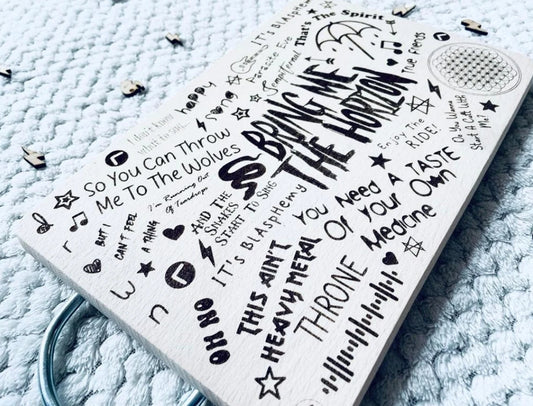 It's Blasphemy
That's The Spirit
Parasite Eve
True Friends
happy
song
I don't know
what to say...
BRING ME
THE HORIZON
Do You Wanna
Start A Cult With
Me?
Enjoy The
RIDE!
So You Can Throw
Me To The Wolves
I'm Running Out
Of Teardrops
AND THE
SNAKES
START TO SING
YOU NEED A TASTE
Of Your Own
Medicine
BUT I
CAN'T FEEL
A THING
IT'S BLASPHEMY
THIS AIN'T
HEAVY METAL
THRONE
OH NO
d
r
w
n